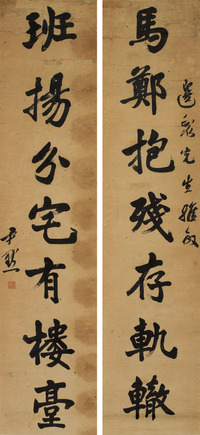 馬鄭抱殘存軌轍
班揚分宅有樓臺
先生雅
尹默